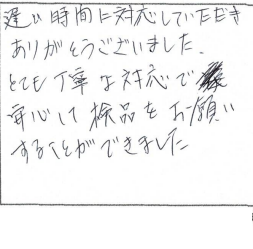 遅い時間に対応していただき
ありがとうございました。
とても丁寧な対応で
安心して検品をお願い
することができました